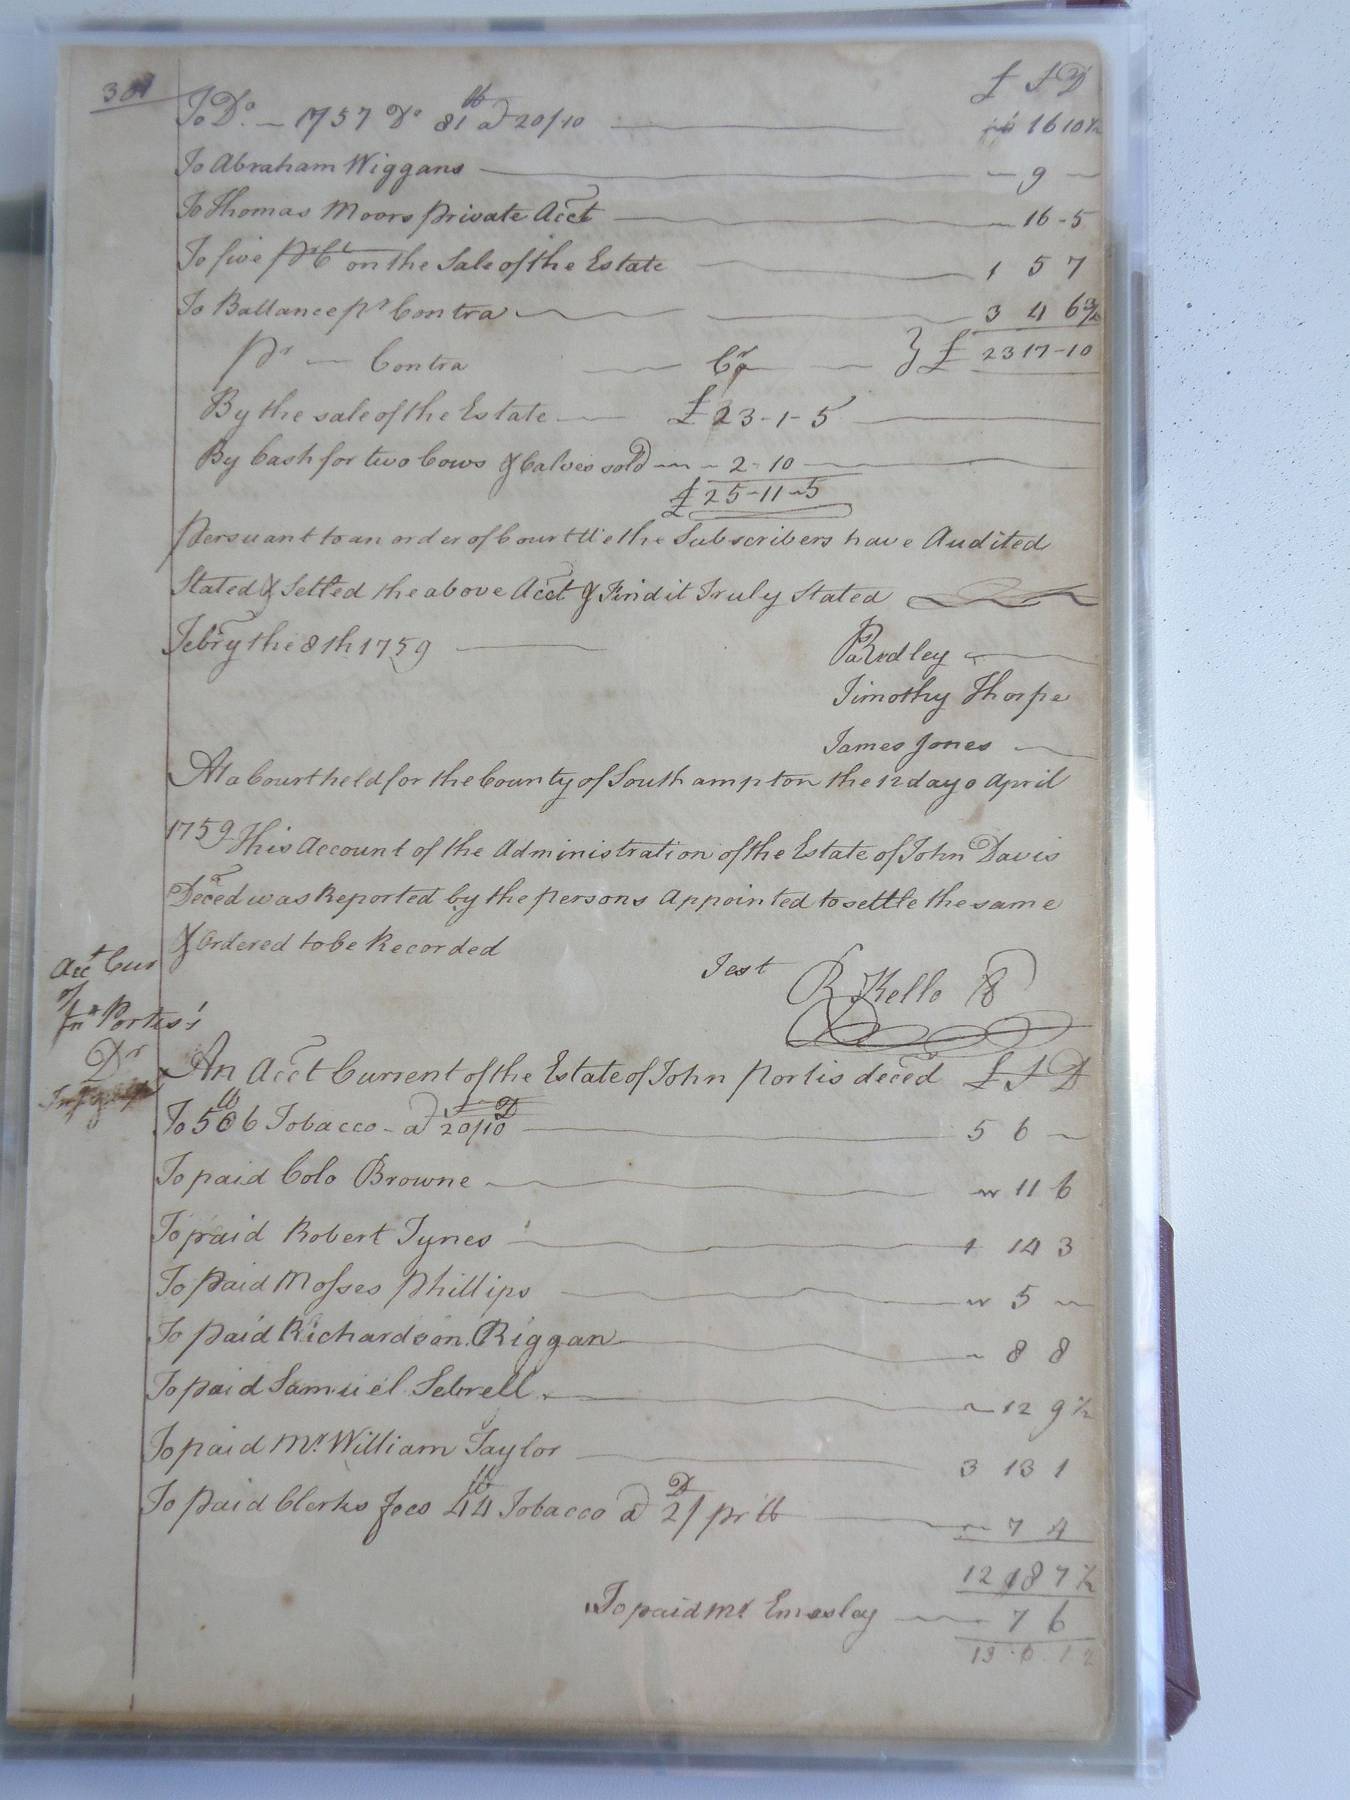 £ S D
To Do. — 1757 Do 81 lb a 20/10 — 16 10½
To Abraham Wiggans — 9 —
To Thomas Moors private Acct — 16-5
To five pr Ct on the Sale of the Estate — 1 5 7
To Ballance pr Contra — 3 4 6¾
pr — Contra — Cr — } £ 23 17-10
By the sale of the Estate — £ 23-1-5
By Cash for two Cows & Calves sold — 2-10
£ 25-11-5
persuant to an order of Court We the Subscribers have Audited
Stated & Settled the above Acct & Find it Truly Stated
Febry the 8th 1759
Ridley
Timothy Thorpe
James Jones
At a Court held for the County of Southampton the 12 day o April
1759 This Account of the Administration of the Estate of John Davis
Deced was Reported by the persons Appointed to settle the same
& Ordered to be Recorded
Test R Kello
Acct Cur
of
Jno Portis's
Dr
An Acct Current of the Estate of John Portis deced £ S D
To 506 lb Tobacco - a 20/10 D — 5 6 —
To paid Colo Browne — 11 6
To paid Robert Tynes — 1 14 3
To paid Mosses Phillips — 5 —
To paid Richardson Riggan — 8 8
To paid Samuel Sebrell — 12 9½
To paid Mr. William Taylor — 3 13 1
To paid Clerks Fees 44 lb Tobacco a 2D/ pr lb — 7 4
12 18 7½
To paid Mr Emesley — 7 6
13 · 6 · 1 2